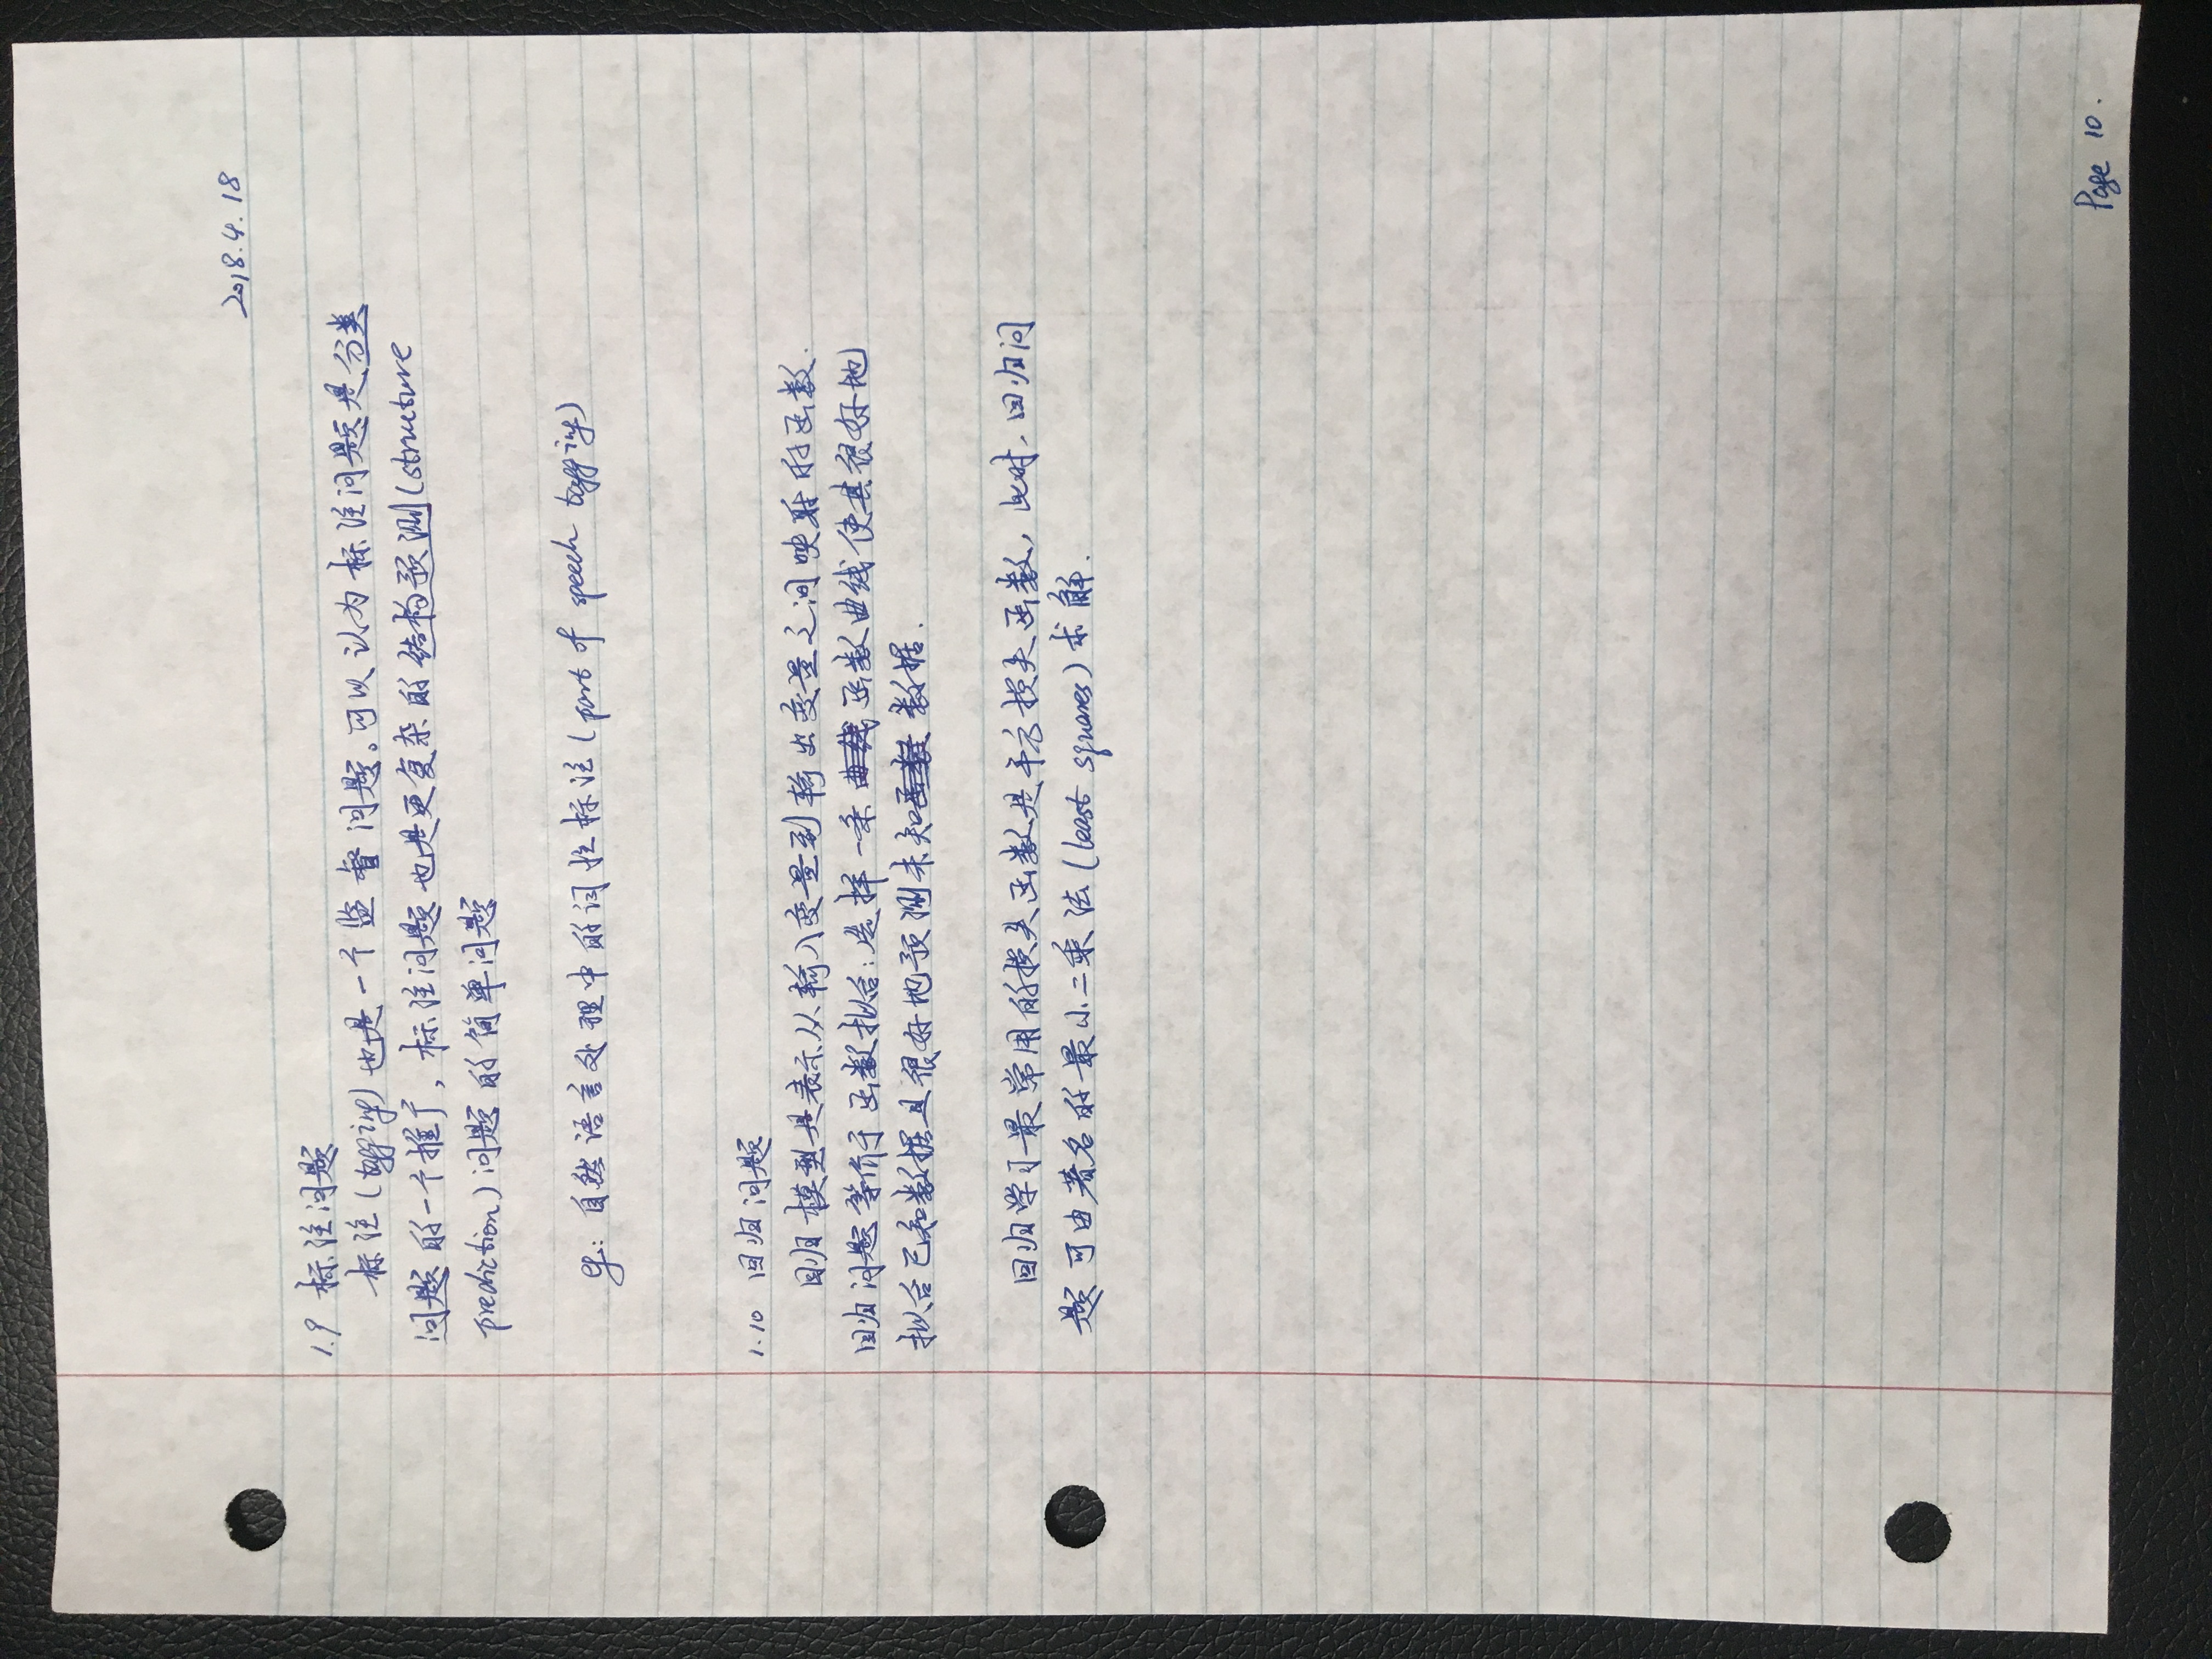 2018.4.18
1.9 标注问题
标注(tagging)也是一个监督问题。可以认为标注问题是分类
问题的一个推广，标注问题也是更复杂的结构预测(structure
prediction)问题的简单问题
eg: 自然语言处理中的词性标注(part of speech tagging)
1.10 回归问题
回归模型是表示从输入变量到输出变量之间映射的函数.
回归问题等价于函数拟合: 选择一条曲线函数曲线使其很好地
拟合已知数据且很好地预测未知函数数据.
回归学习最常用的损失函数是平方损失函数, 此时, 回归问
题可由著名的最小二乘法(least squares)求解.
Page 10.